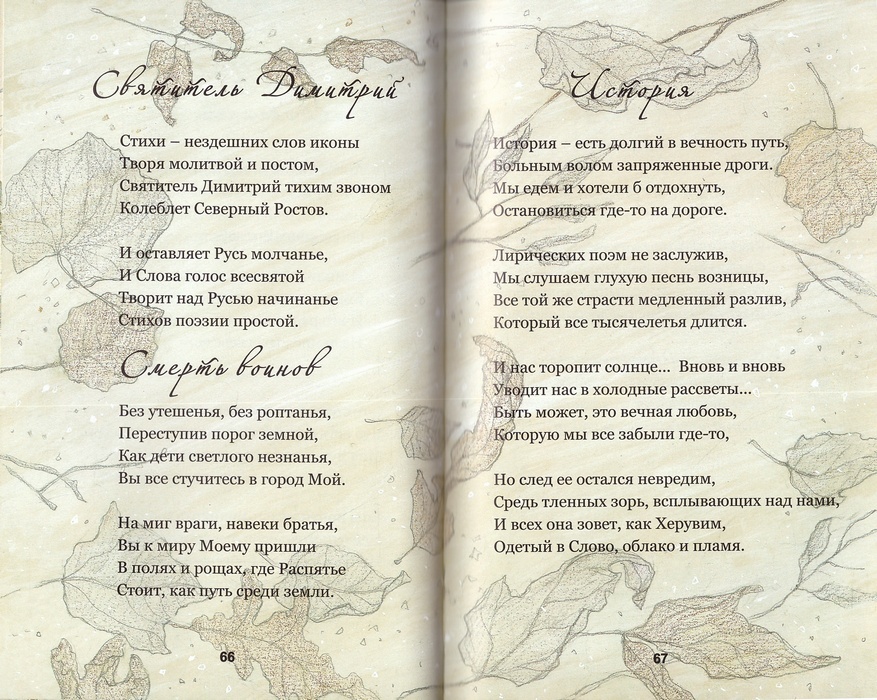 Святитель Димитрий
Стихи – нездешних слов иконы
Творя молитвой и постом,
Святитель Димитрий тихим звоном
Колеблет Северный Ростов.
И оставляет Русь молчанье,
И Слова голос всесвятой
Творит над Русью начинанье
Стихов поэзии простой.
Смерть воинов
Без утешенья, без роптанья,
Переступив порог земной,
Как дети светлого незнанья,
Вы все стучитесь в город Мой.
На миг враги, навеки братья,
Вы к миру Моему пришли
В полях и рощах, где Распятье
Стоит, как путь среди земли.
66
История
История – есть долгий в вечность путь,
Больным волом запряженные дроги.
Мы едем и хотели б отдохнуть,
Остановиться где-то на дороге.
Лирических поэм не заслужив,
Мы слушаем глухую песнь возницы,
Все той же страсти медленный разлив,
Который все тысячелетья длится.
И нас торопит солнце... Вновь и вновь
Уводит нас в холодные рассветы...
Быть может, это вечная любовь,
Которую мы все забыли где-то,
Но след ее остался невредим,
Средь тленных зорь, всплывающих над нами,
И всех она зовет, как Херувим,
Одетый в Слово, облако и пламя.
67